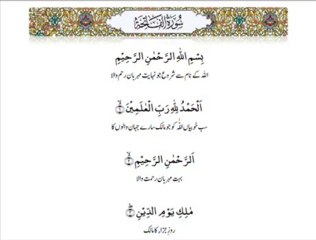 سُوْرَۃُ الْفَاتِحَۃِ
بِسْمِ اللهِ الرَّحْمٰنِ الرَّحِيْمِ
اللہ کے نام سے شروع جو نہایت مہربان رحم والا
اَلْحَمْدُ لِلّٰهِ رَبِّ الْعٰلَمِيْنَ
سب خوبیاں اللہ کو جو مالک سارے جہان والوں کا
الرَّحْمٰنِ الرَّحِيْمِ
بہت مہربان رحمت والا
مٰلِكِ يَوْمِ الدِّيْنِ
روزِ جزا کا مالک